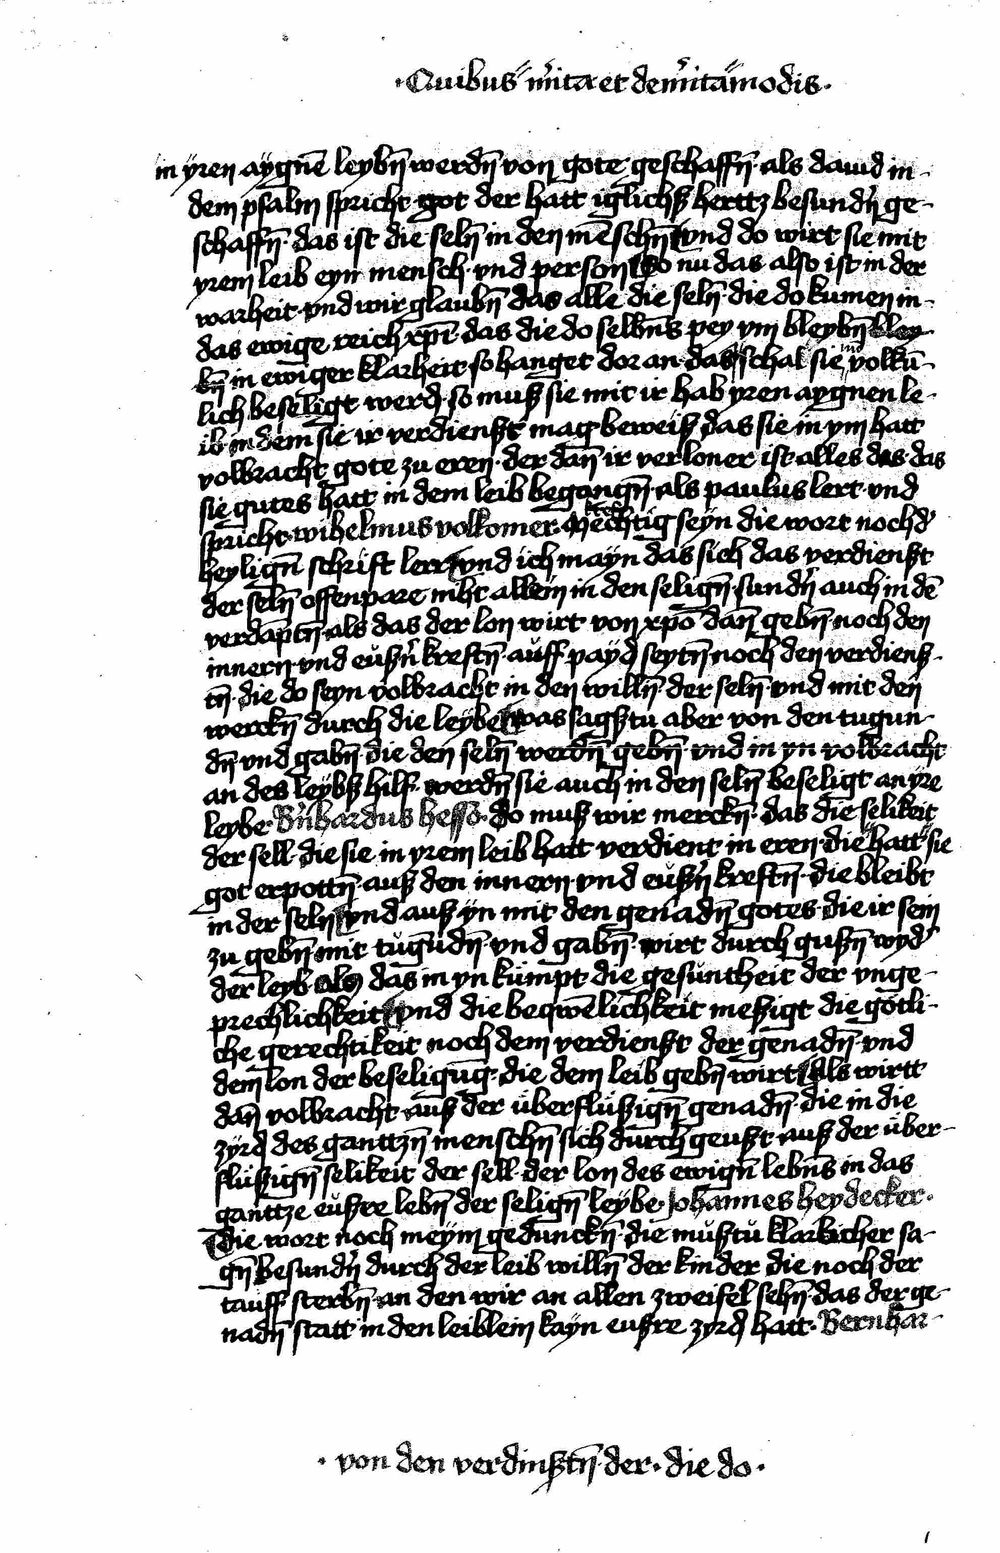 ·Quibus m̃ita et dem̃ita modis·
in yren aÿgnē leybn̄ werdn̄ von gote geschaffn̄ · als dauid in-
dem psalm spricht got der hatt iglichß herttz besundn̾ ge-
schaffn̄ · das ist die seln̄ in den mēschn̄ vnd do wirt sie mit
yrem leib eyn mensch · vnd person So nu das also ist in der
warheit · vnd wir glaubn̄ das alle die seln̄ · die do kumen in-
das ewige reich xp̄i · das die do selbn̄s pey ym bleybn̄ bley
bn̄ in ewiger klarheit so hanget dor an · das schal sie volkū-
lich beseligt werd · so muß sie mit ir hab yren aygnen le-
ib in dem sie ir verdienst mag beweiß das sie in ym hatt
volbracht gote zu eren · der dan̄ ir verloner ist alles des das
sie gutes hatt in dem leib begangn̄ · als paulus lert · vnd
spricht · wilhelmus volkomer · mechtig seyn die wort noch d̾
heylign̄ schrift lerr vnd ich mayn das sich das verdienst
der seln̄ offenpare niht allein in den selign̄ · sundn̾ auch in dē
verdāptn̄ · als das der lon wirt von xp̄o dan̄ gebn̄ noch den
innern vnd eußn̾ kreftn̄ · auff payd̾ seytn̄ noch den verdienß-
tn̄ · die do seyn volbracht in den willn̄ der seln̄ · vnd mit den
werckn̄ durch die leybe was sagstu aber von den tugun-
dn̄ vnd gabn̄ die den seln̄ werdn̄ gebn̄ · vnd in yn volbracht
an des leybß hilf · werdn̄ sie auch in den seln̄ beseligt an yre
leybe · Bn̾hardus hesse · do muß wir merckn̄ · das die selikeit
der sell · die sie in yrem leib hatt verdient in eren · die hatt sie
got erpottn̄ · auß den innern vnd eüßn̾ kreftn̄ · die bleibt
in der seln̄ vnd auß yn mit den genadn̄ gotes · die ir sein
zu gebn̄ mit tugūdn̄ · vnd gabn̄ · wirt durch gußn̄ wyd̾
der leyb · als das in yn kümpt die gesuntheit der vnge-
prechlichkeit vnd die beqwēlichkeit meßigt die gotli-
che gerechtikeit noch dem verdienst der genadn̄ · vnd
dem lon der beseligūg · die dem leib gebn̄ wirt Als wirtt
dan̄ volbracht auß der überflüßign̄ genadn̄ · die in die
zyrd̾ des ganttzn̄ menschn̄ sich durch geußt auß der über-
flüßign̄ selikeit der sell · der lon des ewign̄ lebn̄s in das
ganttze eußre lebn̄ der selign̄ leybe Johannes heydecker·
Die wort noch meym gedunckn̄ · die müstu klarlicher sa-
gn̄ besundn̾ durch der leib willn̄ der kinder die noch der
tauff sterbn̄ · an den wir an allen zweifel sehn̄ · das der ge-
nadn̄ statt in den leiblein kayn eußre zyrd̾ hatt · Bernhar-
· von den verdinstn̄ · der · die do ·